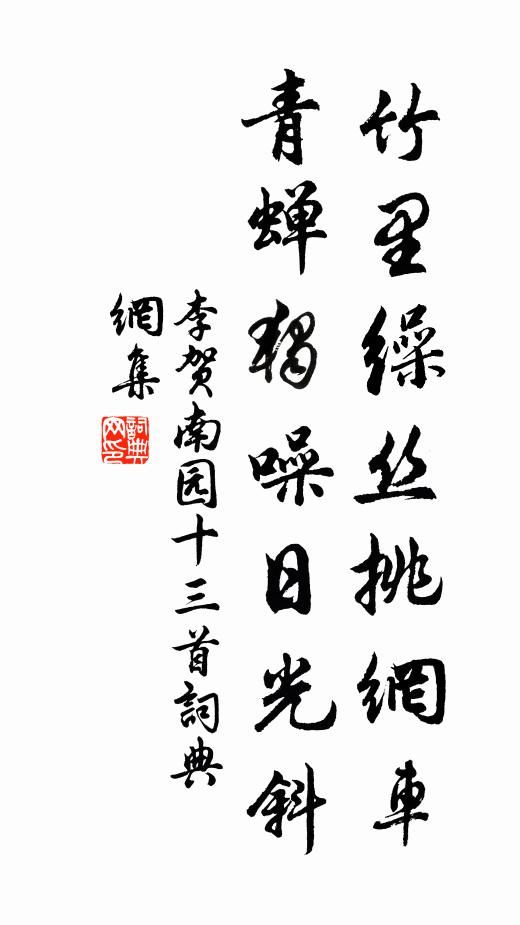 竹里缲丝挑網車
青蝉独噪日光斜
李贺南园十三首詞典
網集
詞典
网印